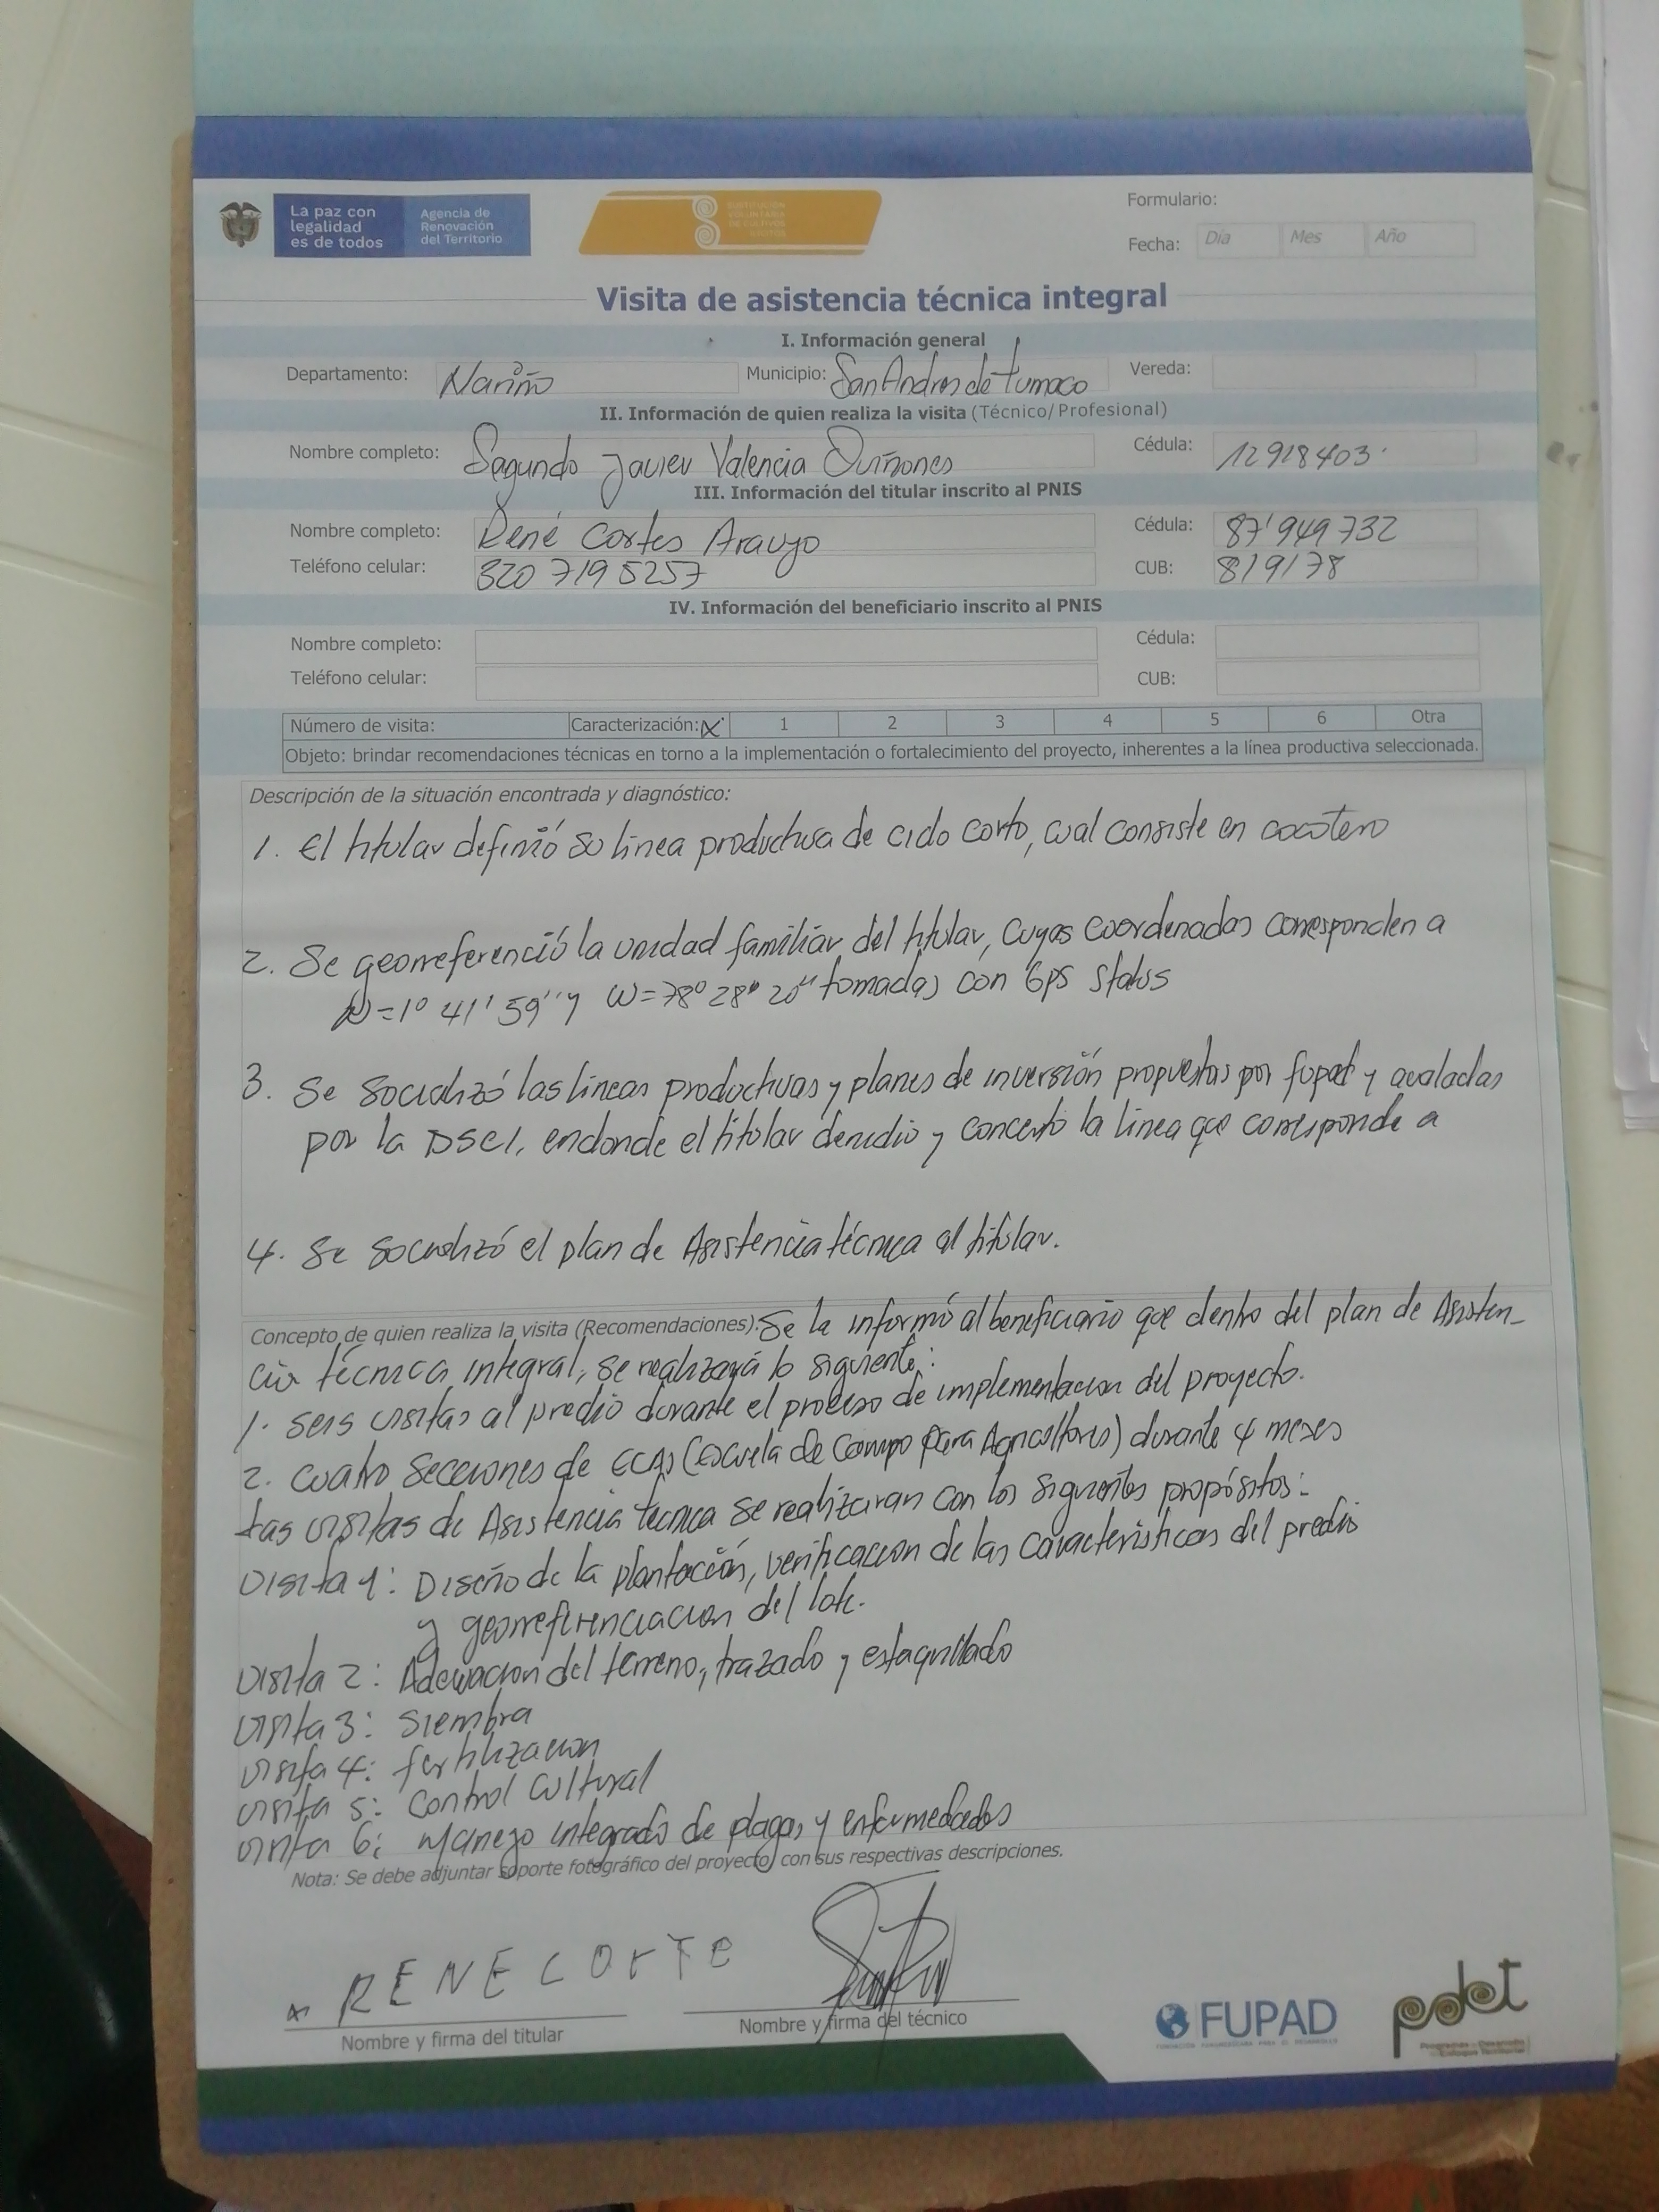 La paz con legalidad es de todos
Agencia de Renovación del Territorio
SUSTITUCIÓN VOLUNTARIA DE CULTIVOS ILÍCITOS
Formulario:
Fecha: Día Mes Año
Visita de asistencia técnica integral
I. Información general
Departamento: Nariño Municipio: San Andres de Tumaco Vereda:
II. Información de quien realiza la visita (Técnico/Profesional)
Nombre completo: Segundo Javier Valencia Quiñones Cédula: 12918403
III. Información del titular inscrito al PNIS
Nombre completo: René Cortes Araujo Cédula: 87'949732
Teléfono celular: 320 7195257 CUB: 819178
IV. Información del beneficiario inscrito al PNIS
Nombre completo: Cédula:
Teléfono celular: CUB:
Número de visita: Caracterización: X 1 2 3 4 5 6 Otra
Objeto: brindar recomendaciones técnicas en torno a la implementación o fortalecimiento del proyecto, inherentes a la línea productiva seleccionada.
Descripción de la situación encontrada y diagnóstico:
1. El titular definió su linea productiva de ciclo corto, cual consiste en cocotero
2. Se georreferenció la unidad familiar del titular, cuyas coordenadas corresponden a
N=1° 41' 59'' y W=78° 28' 20'' tomadas con Gps Status
3. Se socializó las lineas productivas y planes de inversión propuestas por fupad y avaladas
por la DSCI, endonde el titular y concertó la linea que corresponde a
4. Se socializó el plan de Asistencia técnica al titular.
Concepto de quien realiza la visita (Recomendaciones): Se le informó al beneficiario que dentro del plan de Asisten-
cia técnica integral, se realizará lo siguiente:
1. Seis visitas al predio durante el proceso de implementacion del proyecto.
2. Cuatro Secciones de ECAS (Escuela de Campo para Agricultores) durante 4 meses
Las visitas de Asistencia tecnica se realizaran con los siguientes propósitos:
Visita 1: Diseño de la plantación, verificacion de las caracteristicas del predio
y georreferenciacion del lote.
Visita 2: Adecuacion del terreno, trazado y estaquillado
Visita 3: Siembra
Visita 4: fertilizacion
Visita 5: Control Cultural
Visita 6: Manejo integrado de plagas y enfermedades
Nota: Se debe adjuntar soporte fotográfico del proyecto con sus respectivas descripciones.
x RENE CORTE
Nombre y firma del titular
Nombre y firma del técnico
FUPAD
pdet
Programas de Desarrollo con Enfoque Territorial